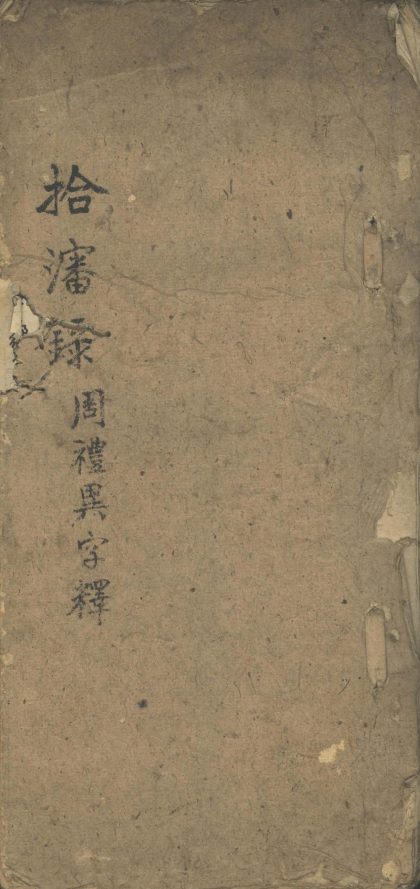 拾瀋錄
周禮異字釋